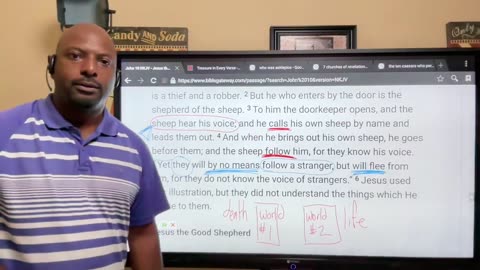 CANDY AND SODA
John 10 NKJV - Jesus th
Treasure in Every Verse
who was antipena - Goo
7 churches of revelation
the ten caesars who per
https://www.biblegateway.com/passage/?search=John%2010&version=NKJV
is a thief and a robber. 2 But he who enters by the door is the
shepherd of the sheep. 3 To him the doorkeeper opens, and the
sheep hear his voice; and he calls his own sheep by name and
leads them out. 4 And when he brings out his own sheep, he goes
before them; and the sheep follow him, for they know his voice.
Yet they will by no means follow a stranger, but will flee from
for they do not know the voice of strangers." 6 Jesus used
illustration, but they did not understand the things which He
to them.
death world #1 world #2 life
esus the Good Shepherd